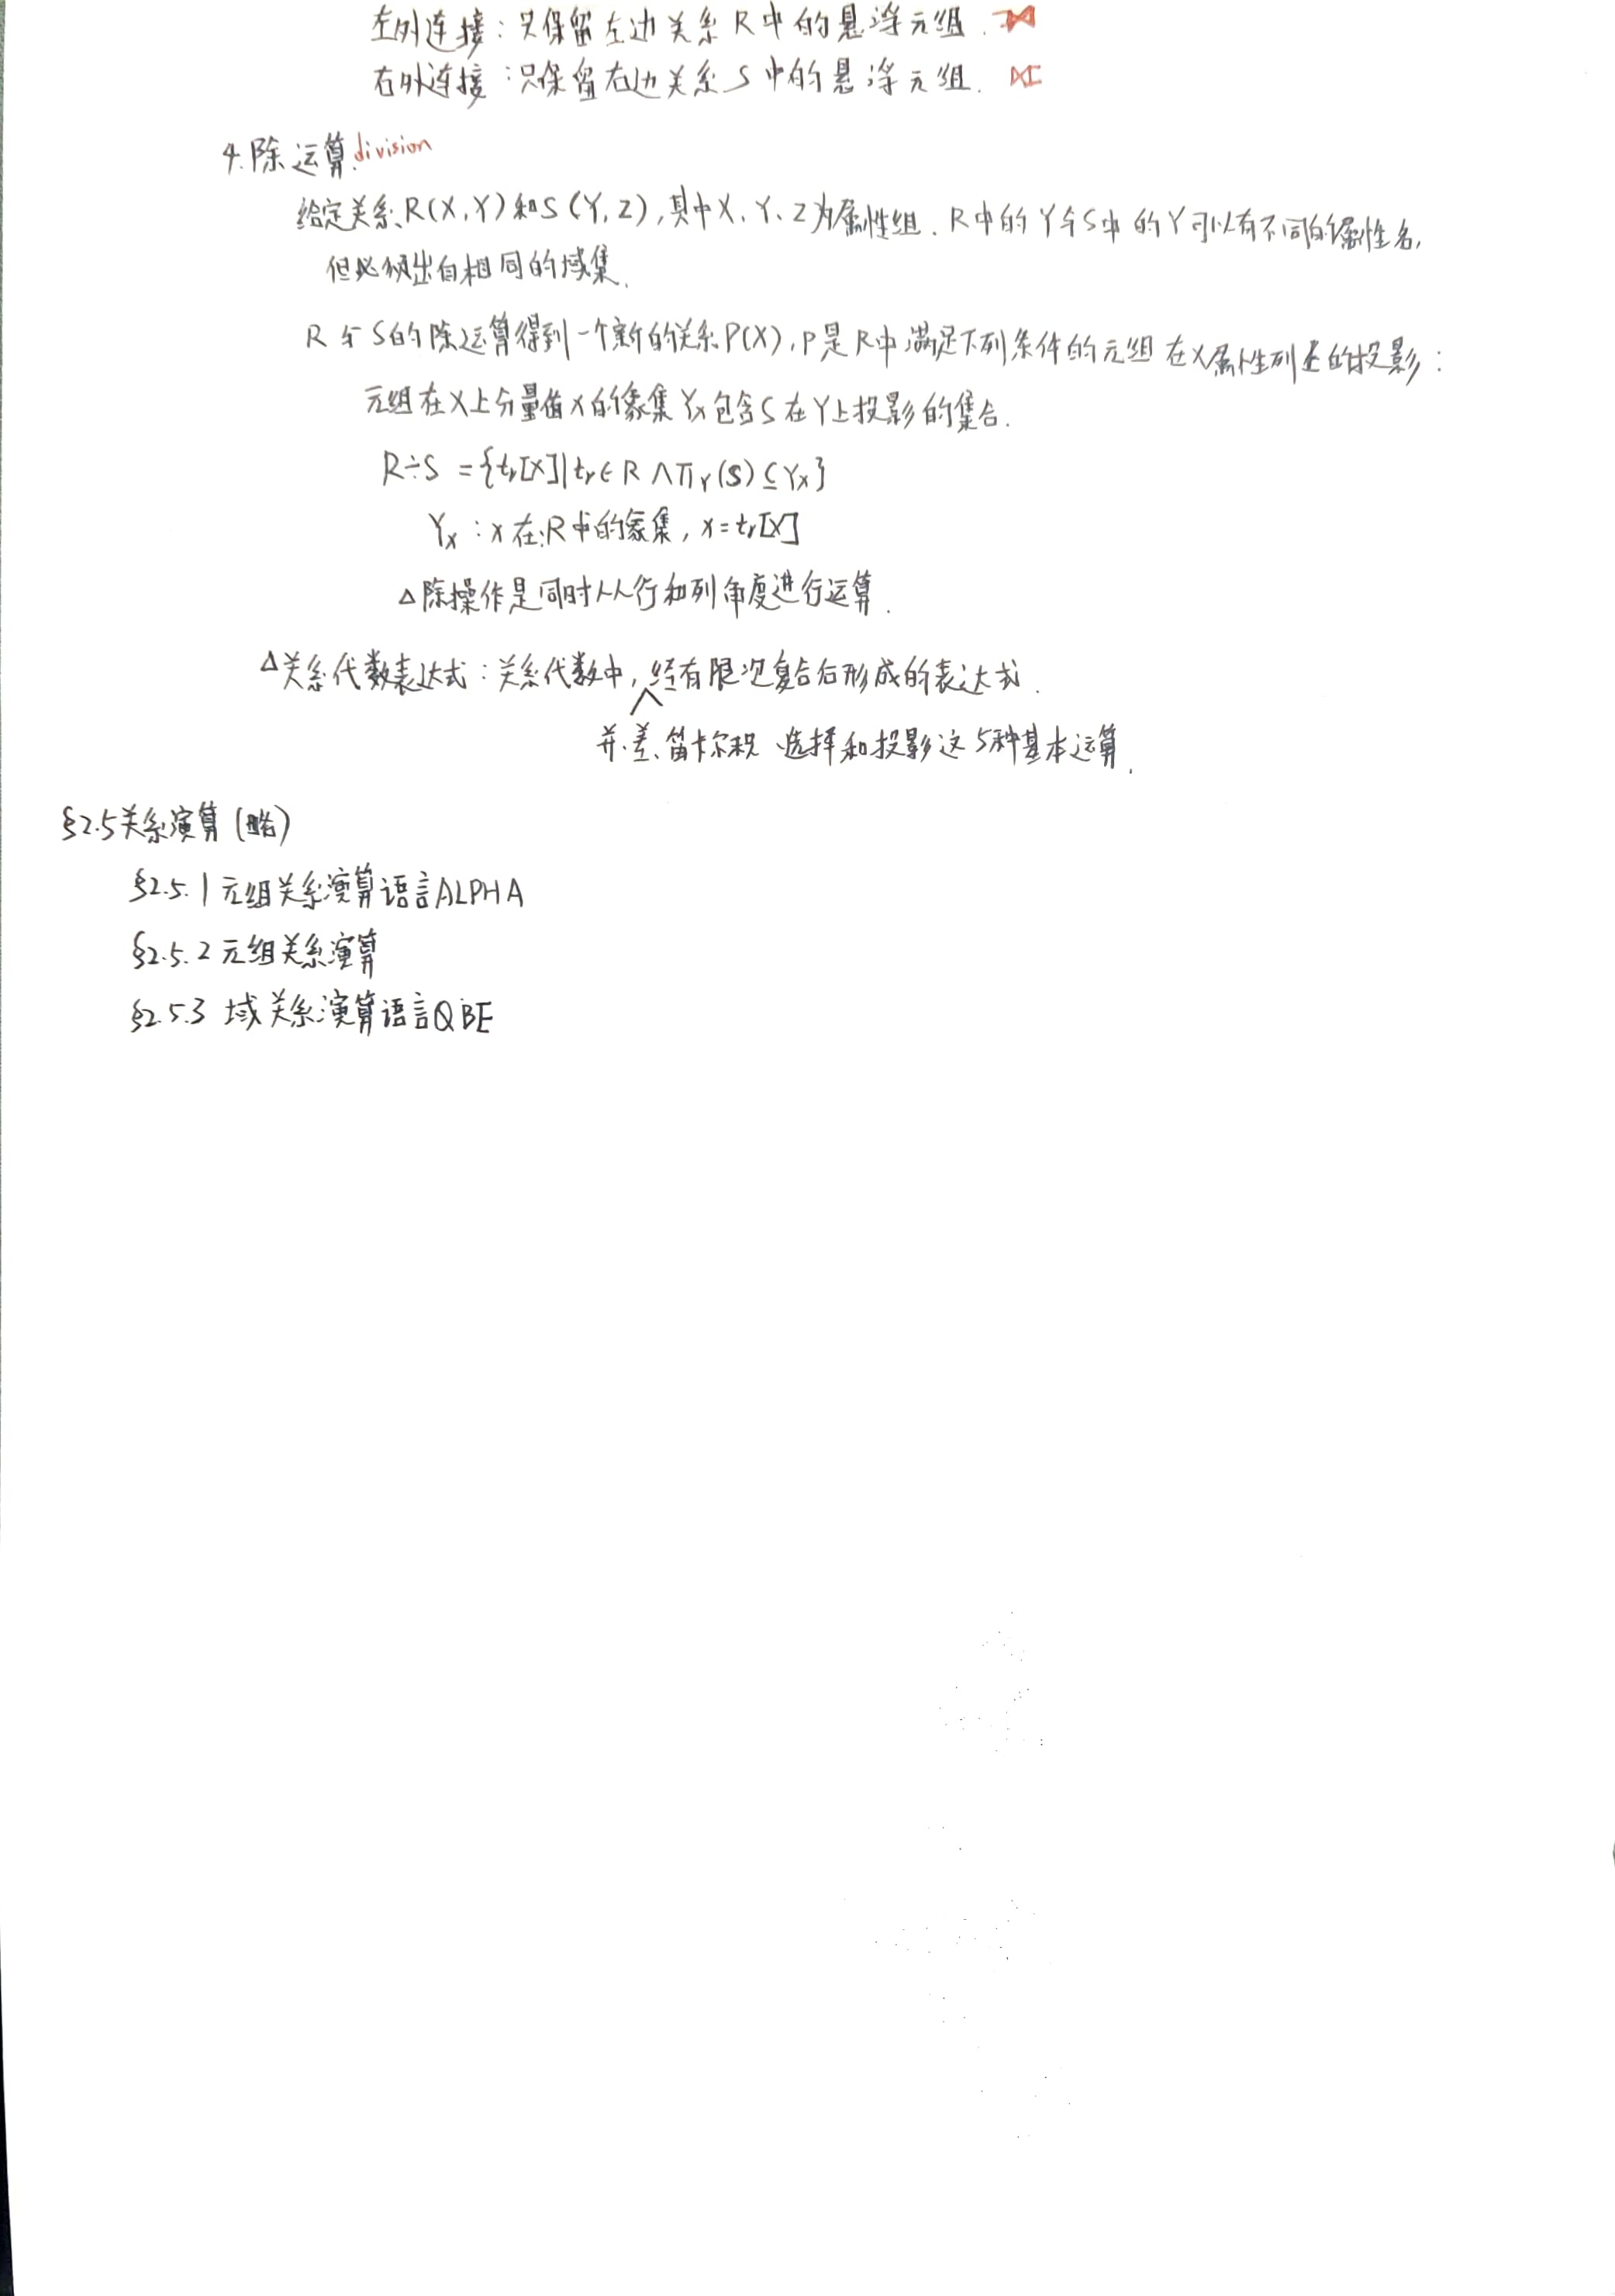 左外连接：只保留左边关系R中的悬浮元组. ⟕
右外连接：只保留右边关系S中的悬浮元组. ⟖
4.除运算.division
给定关系R(X,Y)和S(Y,Z),其中X、Y、Z为属性组.R中的Y与S中的Y可以有不同的属性名,
但必须出自相同的域集.
R与S的除运算得到一个新的关系P(X),P是R中满足下列条件的元组在X属性列上的投影：
元组在X上分量值x的象集Yx包含S在Y上投影的集合.
R÷S={tr[X]|tr∈R∧πY(S)⊆Yx}
Yx：x在R中的象集,x=tr[X]
△除操作是同时从行和列角度进行运算.
△关系代数表达式：关系代数中,经有限次复合后形成的表达式.
并、差、笛卡尔积、选择和投影这5种基本运算.
§2.5关系演算(略)
§2.5.1元组关系演算语言ALPHA
§2.5.2元组关系演算
§2.5.3 域关系演算语言QBE